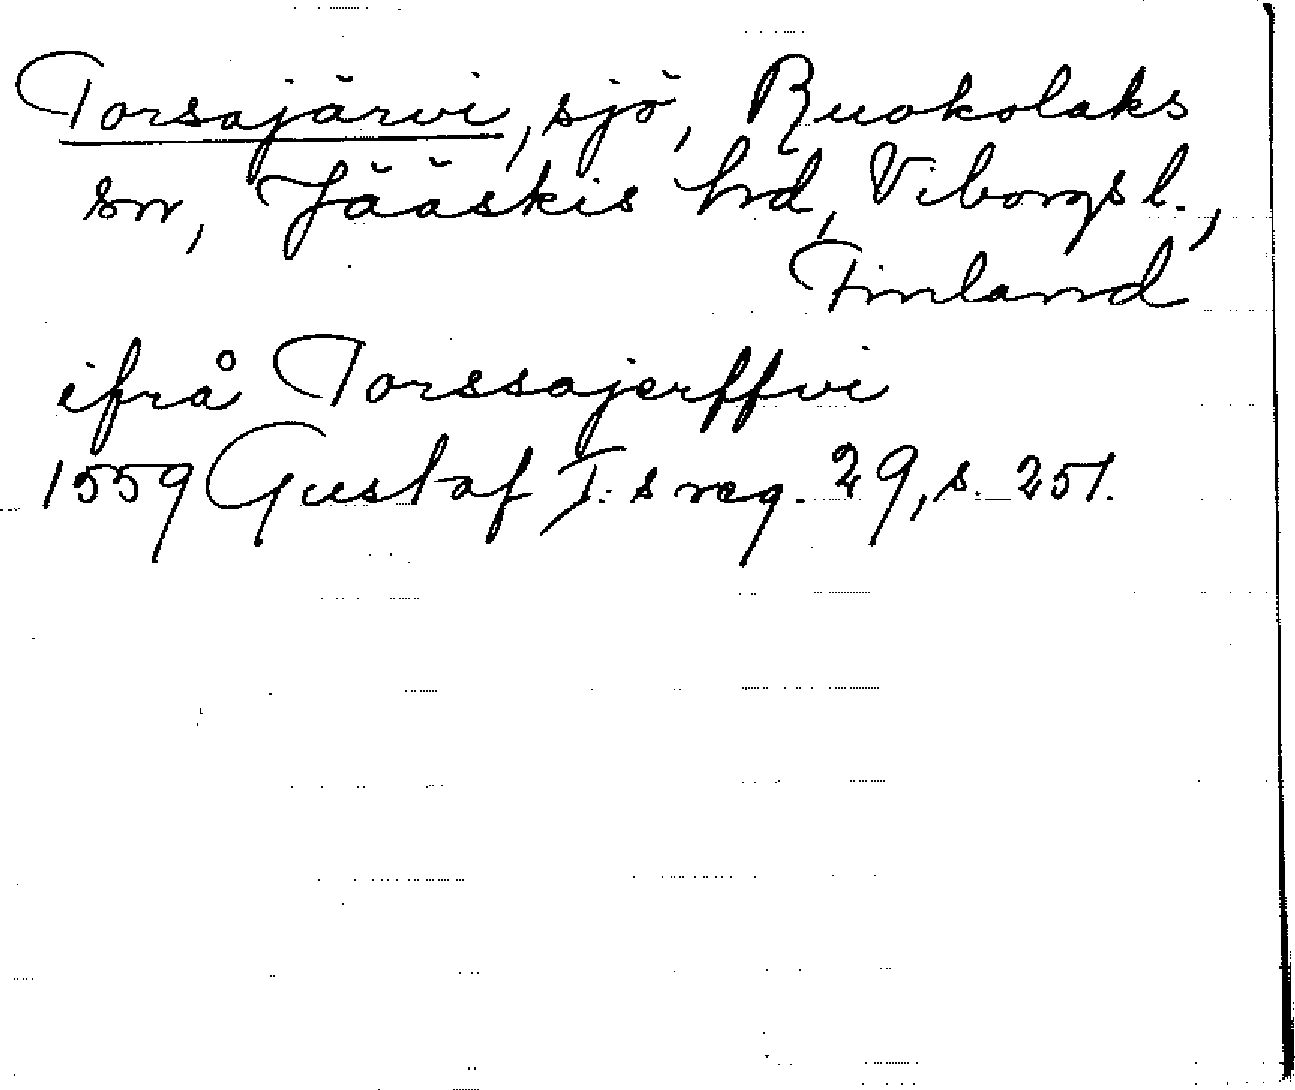 Torsajärvi, sjö, Ruokolaks
sn, Jääskis hrd, Viborgs l.,
Finland
ifrå Torssajerffvi
1559 Gustaf I:s reg. 29, s. 251.